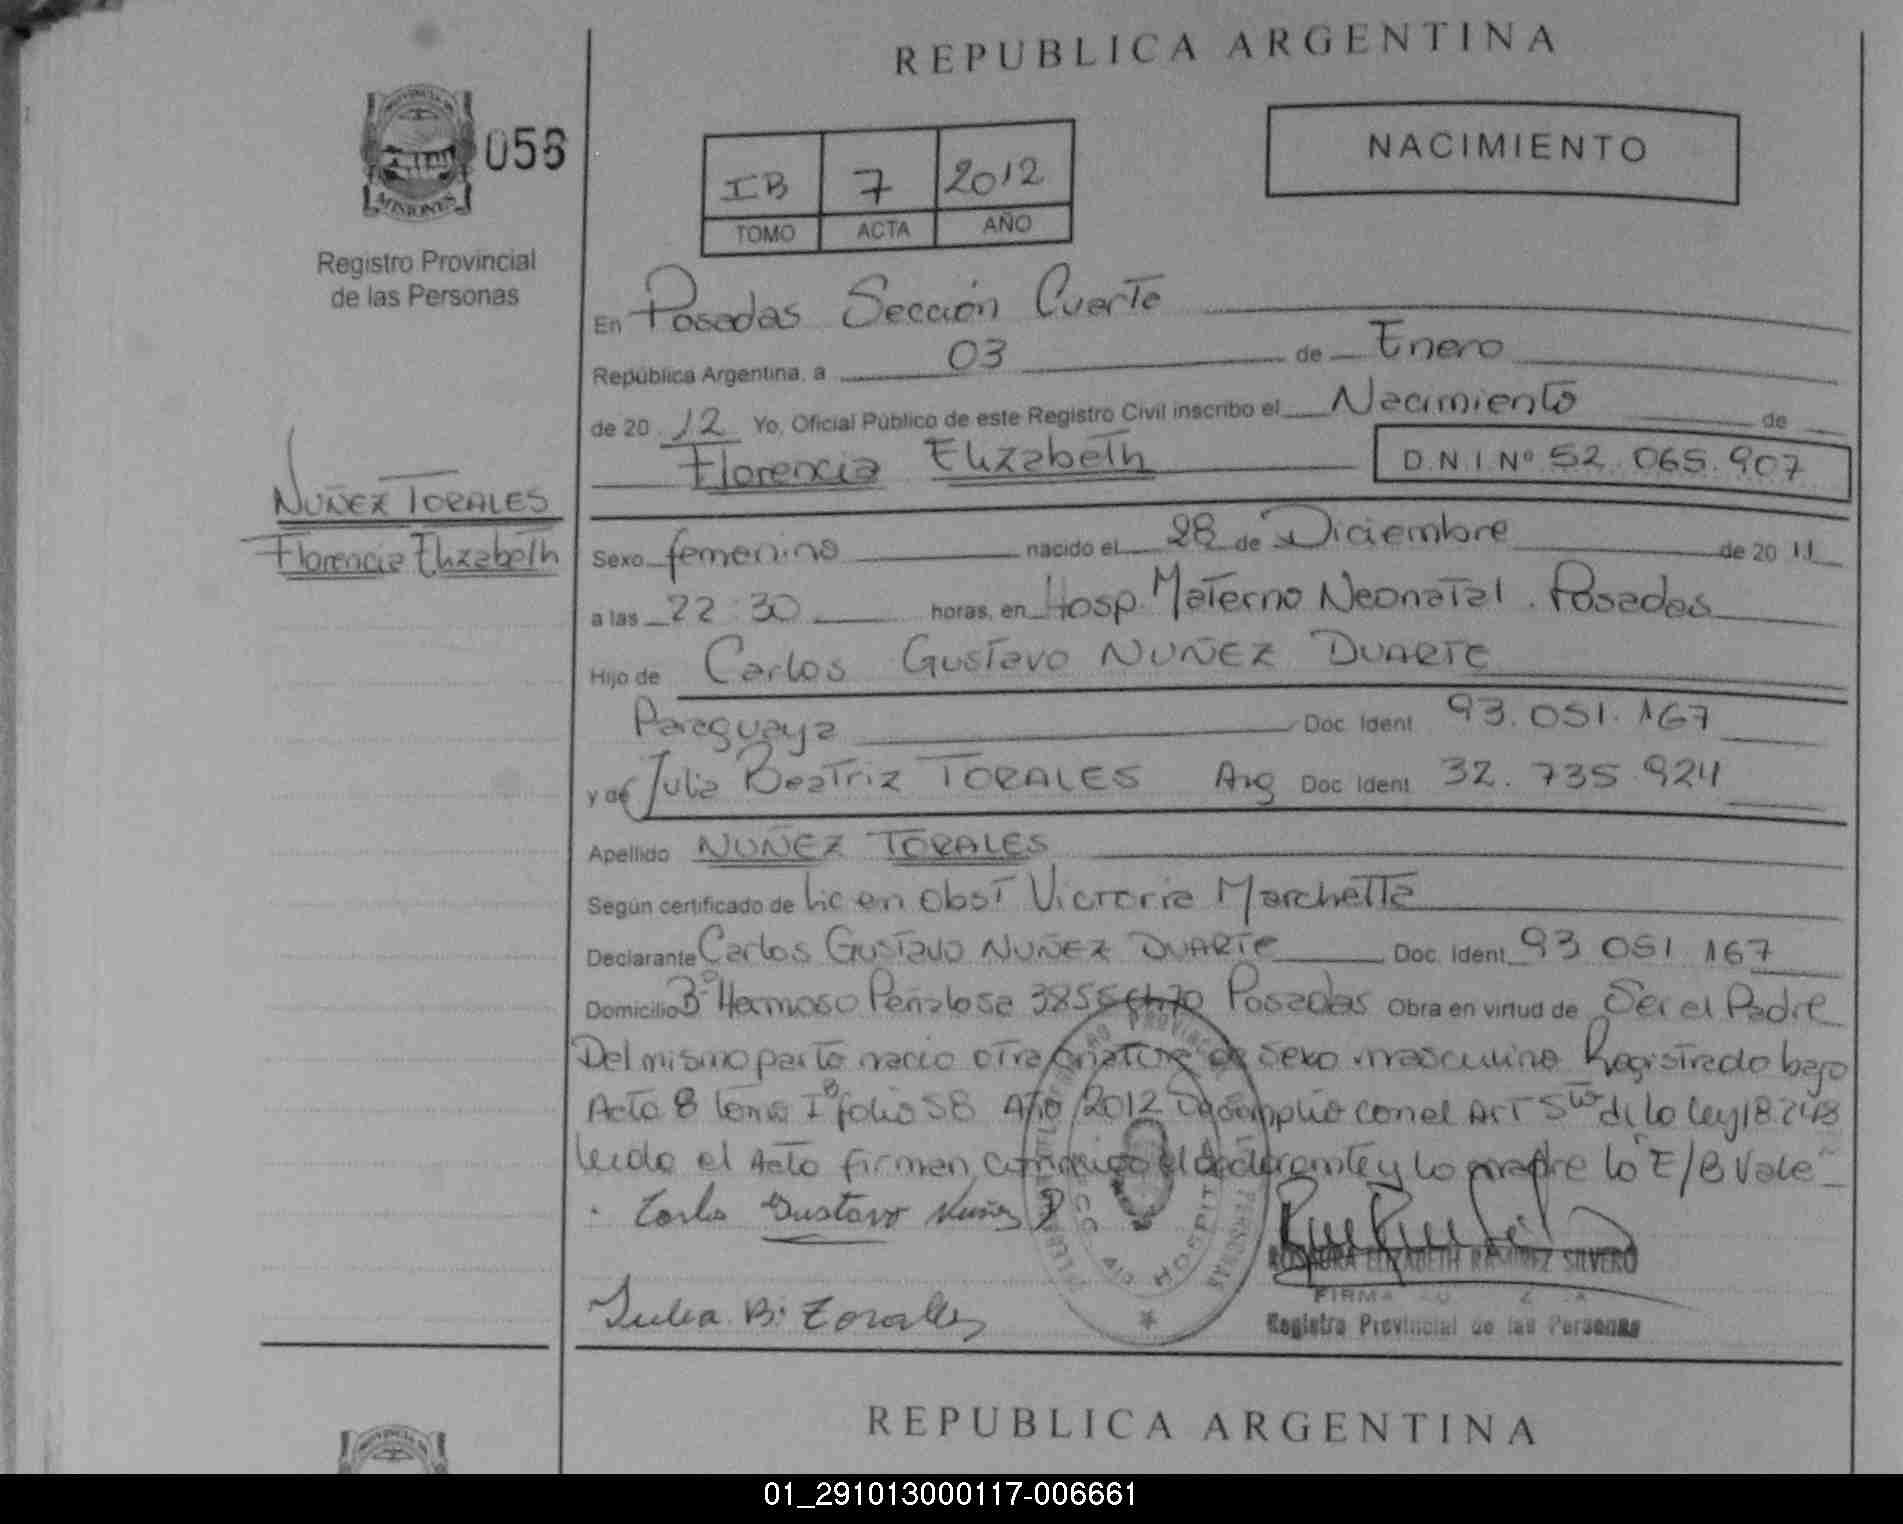 REPUBLICA ARGENTINA
PROVINCIA DE
MISIONES
058
Registro Provincial
de las Personas
NACIMIENTO
IB 7 2012
TOMO ACTA AÑO
En Posadas Sección Cuarta
República Argentina, a 03 de Enero
de 2012 Yo, Oficial Público de este Registro Civil inscribo el Nacimiento de
Florencia Elizabeth D.N.I Nº 52.065.907
NUÑEZ TORALES
Florencia Elizabeth
Sexo femenino nacido el 28 de Diciembre de 2011
a las 22:30 horas, en Hosp. Materno Neonatal. Posadas
Hijo de Carlos Gustavo NUÑEZ DUARTE
Paraguaya Doc. Ident. 93.051.167
y de Julia Beatriz TORALES Arg Doc. Ident. 32.735.924
Apellido NUÑEZ TORALES
Según certificado de Lic en Obst Victoria Marchetta
Declarante Carlos Gustavo NUÑEZ DUARTE Doc. Ident. 93 051 167
Domicilio Bº Hermoso Peñalosa 3855 Posadas Obra en virtud de Ser el Padre
Del mismo parto nacio otra criatura de sexo masculino Registrado bajo
Acta 8 tomo IB folio 58 Año 2012 con el Art 5to de la ley 18.248
leida el Acta firman conmigo el declarante y la madre la "E/B Vale"
Carlos Gustavo Nuñez D
ROSAURA ELIZABETH RAMIREZ SILVERO
Registro Provincial de las Personas
Julia B. Torales
REPUBLICA ARGENTINA
01_291013000117-006661